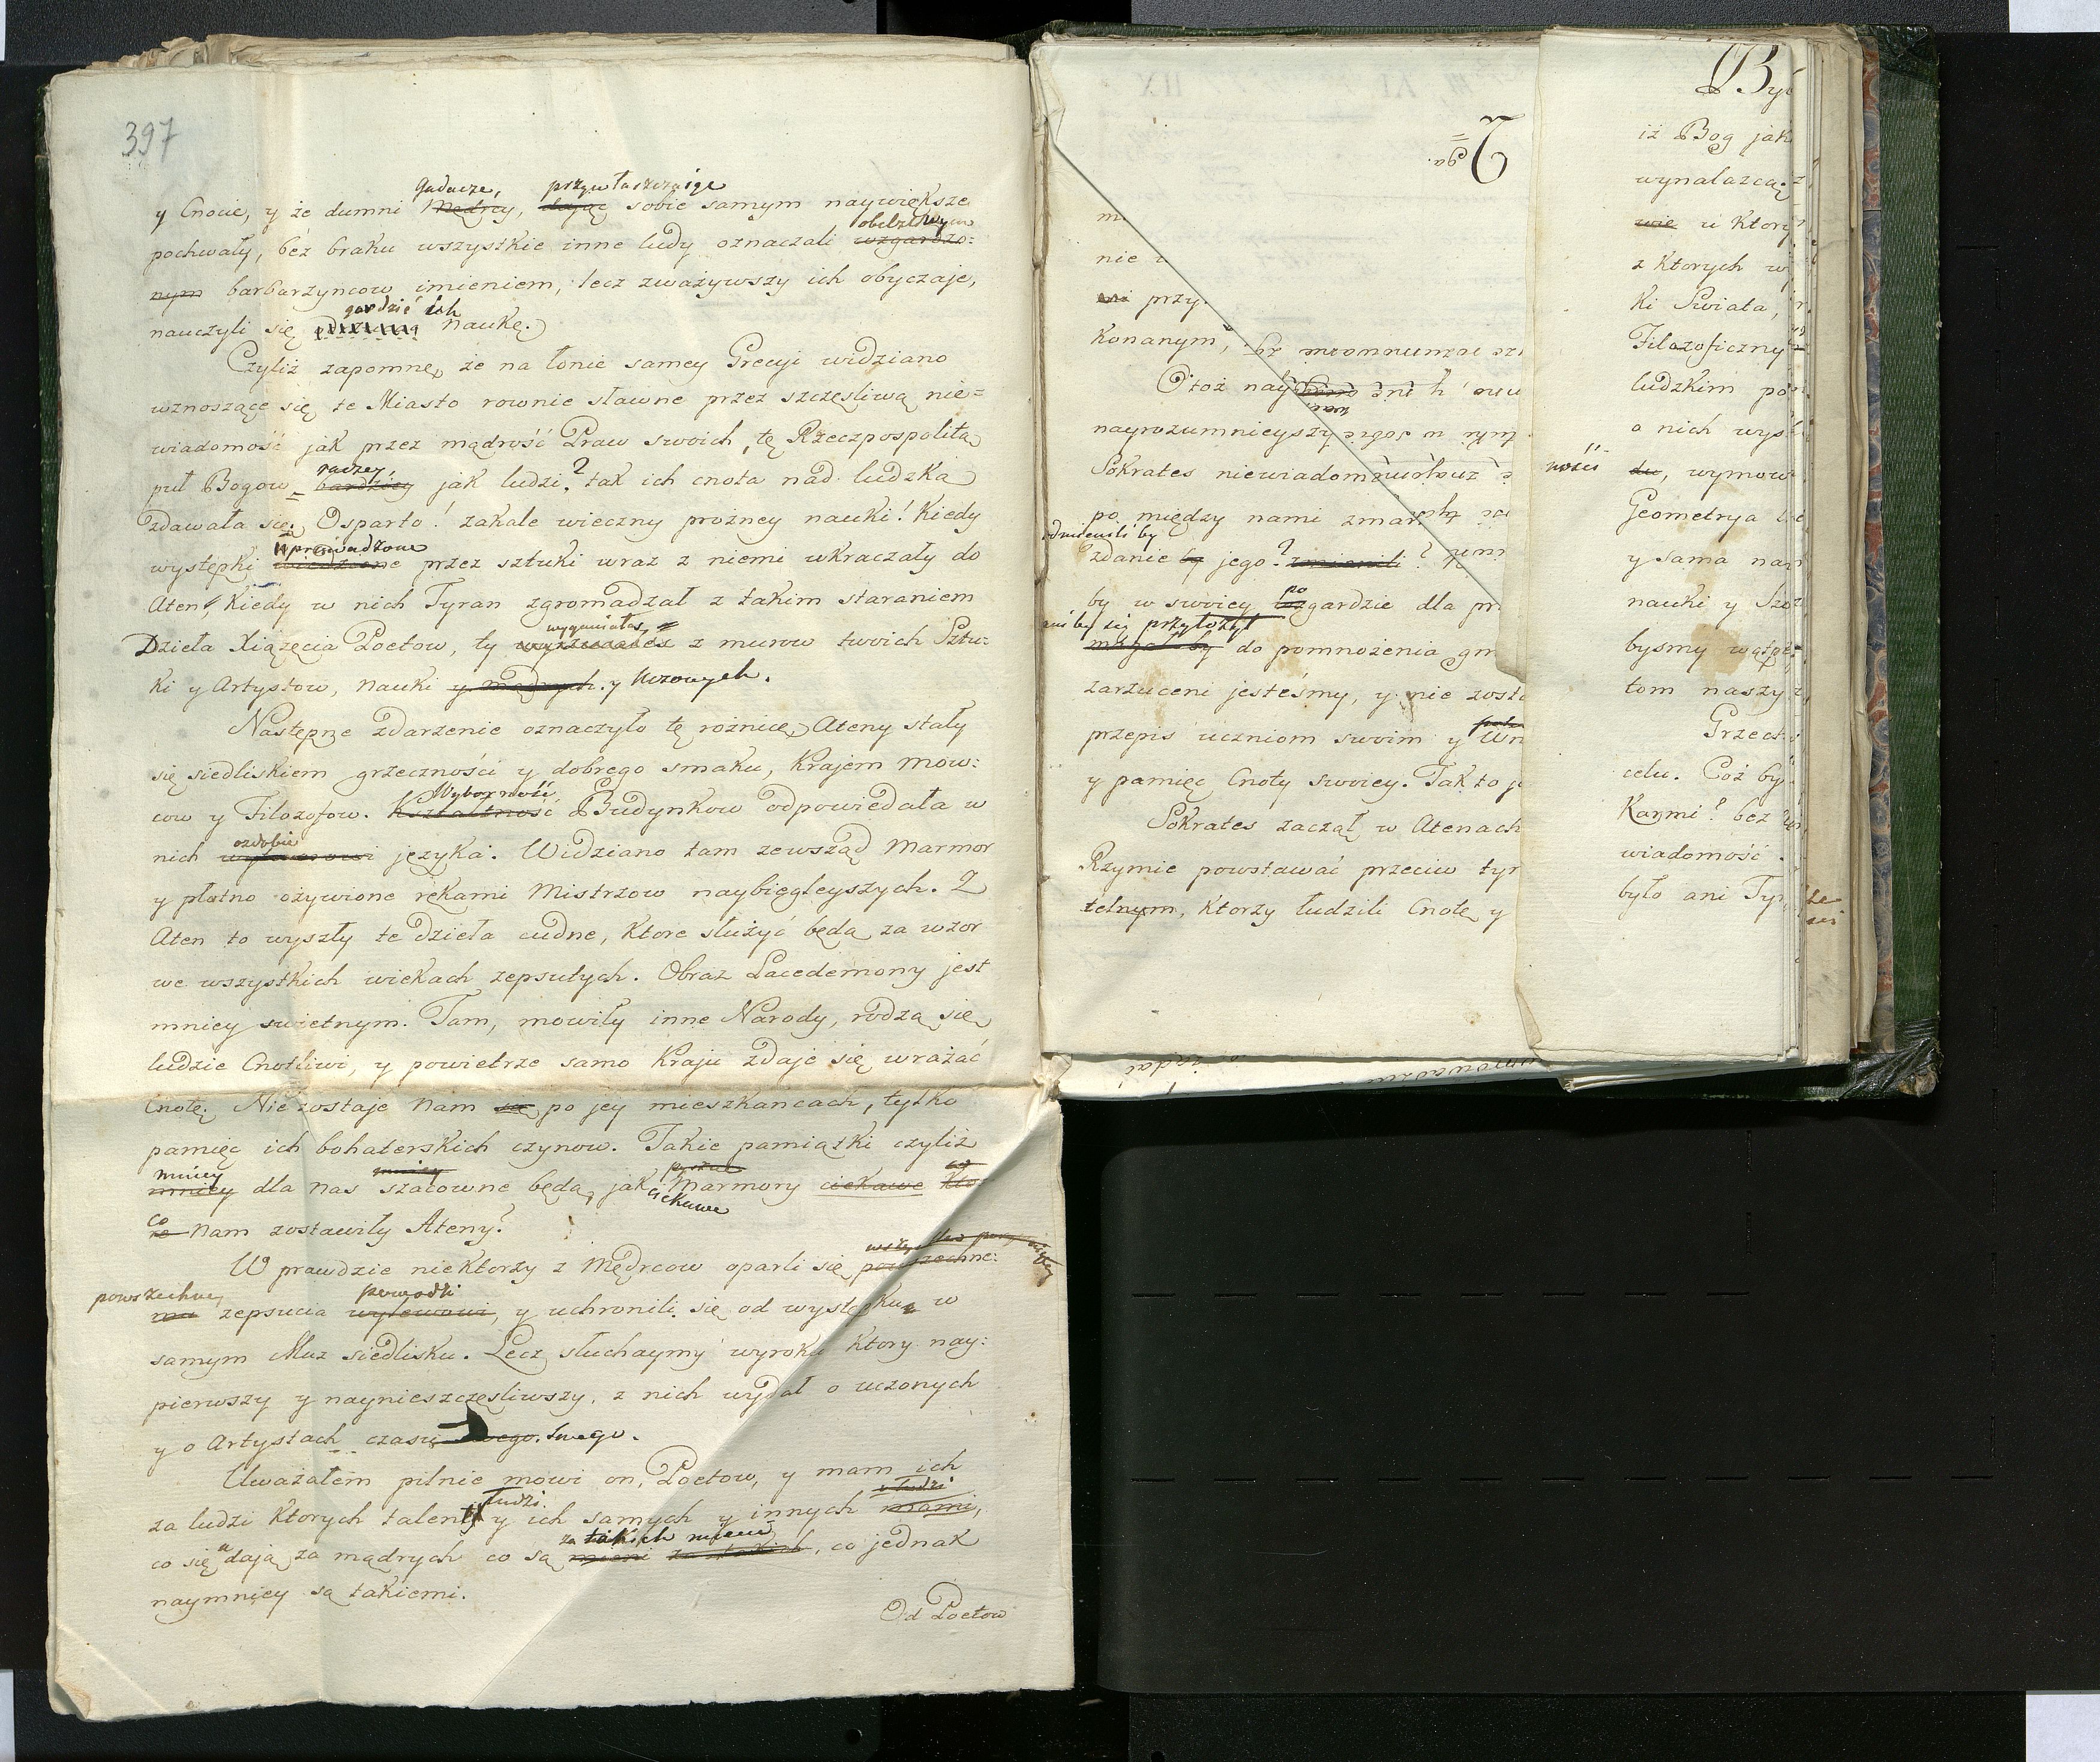 397
gadacze, przywłaszczaiąc
y Cnocie, y że dumni Mędrcy, dając sobie samym naywiększe
obelżywym
pochwały, bez braku wszystkie inne ludy oznaczali wzgardzo:
nym barbarzyncow imieniem, lecz zważywszy ich obyczaje,
gardzić ich
nauczyli się naukę.
Czyliż zapomnę, że na łonie samey Grecyi widziano
wznoszące się te Miasto rownie sławne przez szczęsliwą nie=
wiadomość jak przez mądrość Praw swoich, tę Rzeczpospolitą
raczey
puł Bogow bardziey jak ludzi? tak ich cnota nad ludzka
zdawała się. O Sparto! zakale wieczny prożney nauki! Kiedy
wprowadzone
występki wiedzione przez sztuki wraz z niemi wkraczały do
Aten, Kiedy w nich Tyran zgromadzał z takim staraniem
wyganiałas
Dzieła Xiążęcia Poetow, ty z murow twoich Sztu:
ki y Artystow, nauki y mądrych. y Uczonych.
Następne zdarzenie oznaczyło tę rożnicę, Ateny stały
się siedliskiem grzeczności y dobrego smaku, Krajem Mow:
Wyborność
cow y Filozofow. Kształtność Budynkow odpowiedała w
ozdobie
nich języka. Widziano tam zewsząd Marmor
y płotno ożywione rękami Mistrzow naybiegleyszych. Z
Aten to wyszły te dzieła cudne, Ktore służyć będą za wzor
we wszystkich wiekach zepsutych. Obraz Lacedemony jest
mniey swietnym. Tam, mowiły inne Narody, rodzą się
ludzie Cnotliwi, y powietrze samo Kraju zdaje się wrażać
Cnotę. Nie zostaje Nam są po jey mieszkańcach, tylko
pamięc ich bohaterskich czynow. Takie pamiątki czyliż
mniey mniey pyszne co
mniey dla nas szacowne będą, jak Marmory ciekawe Kto
ciekawe
co
re Nam zostawiły Ateny?
W prawdzie niektorzy z Mędrcow oparli się powszechne:
powszechney powodzi
mu zepsucia wylewowi, y uchronili się od występku w
samym Muz siedlisku. Lecz słuchaymy wyroku Ktory nay:
pierwszy y naynieszczęsliwszy, z nich wydał o uczonych
y o Artystach czasu swego. swego.
Uważałem pilnie mowi on, Poetow, y mam ich
łudzi łudzi
za ludzi Ktorych talent y ich samych y innych mami,
za takich mieni
co się udają za mądrych co są mieni za takich, co jednak
naymniey są takiemi.
Od Poetow
nie
przy
Konanym,
Otoż nay
nayrozumnieyszy
Sokrates niewiadomo
po między nami zmar
odmienili by
zdanie by jego? zmienili?
po
by w swoiey wzgardzie dla pr
by się przyłożył
do pomnożenia gm
zarzuceni jesteśmy, y nie zosta
przepis uczniom swoim y Wn
y pamięc Cnoty swoiey. Tak to je
Sokrates zaczął w Atenach
Rzymie powstawać przeciw tyr
telnym, Ktorzy łudzili Cnotę y
By
iż Bog jak
wynalazcą
zwie u Ktory
z Ktorych w
Ki Swiata,
Filozoficzny
ludzkim po
o nich wys
ności
du, wymow
Geometrya
y sama na
nauki y Sz
bysmy wątp
tom naszy
Grzech
celu. Coż by
Karmi? bez
wiadomość
było ani Ty